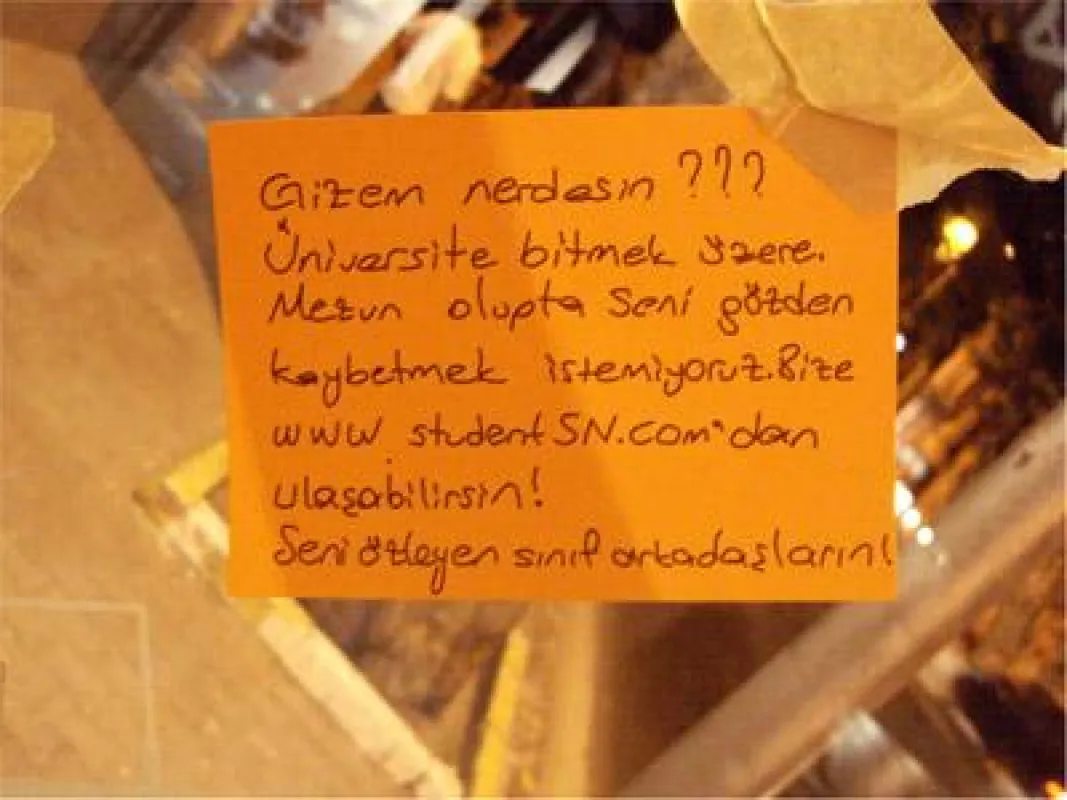 Gizem nerdesin ???
Üniversite bitmek üzere.
Mezun olupta seni gözden
kaybetmek istemiyoruz.Bize
www studentSN.com'dan
ulaşabilirsin!
Seni özleyen sınıf arkadaşların!